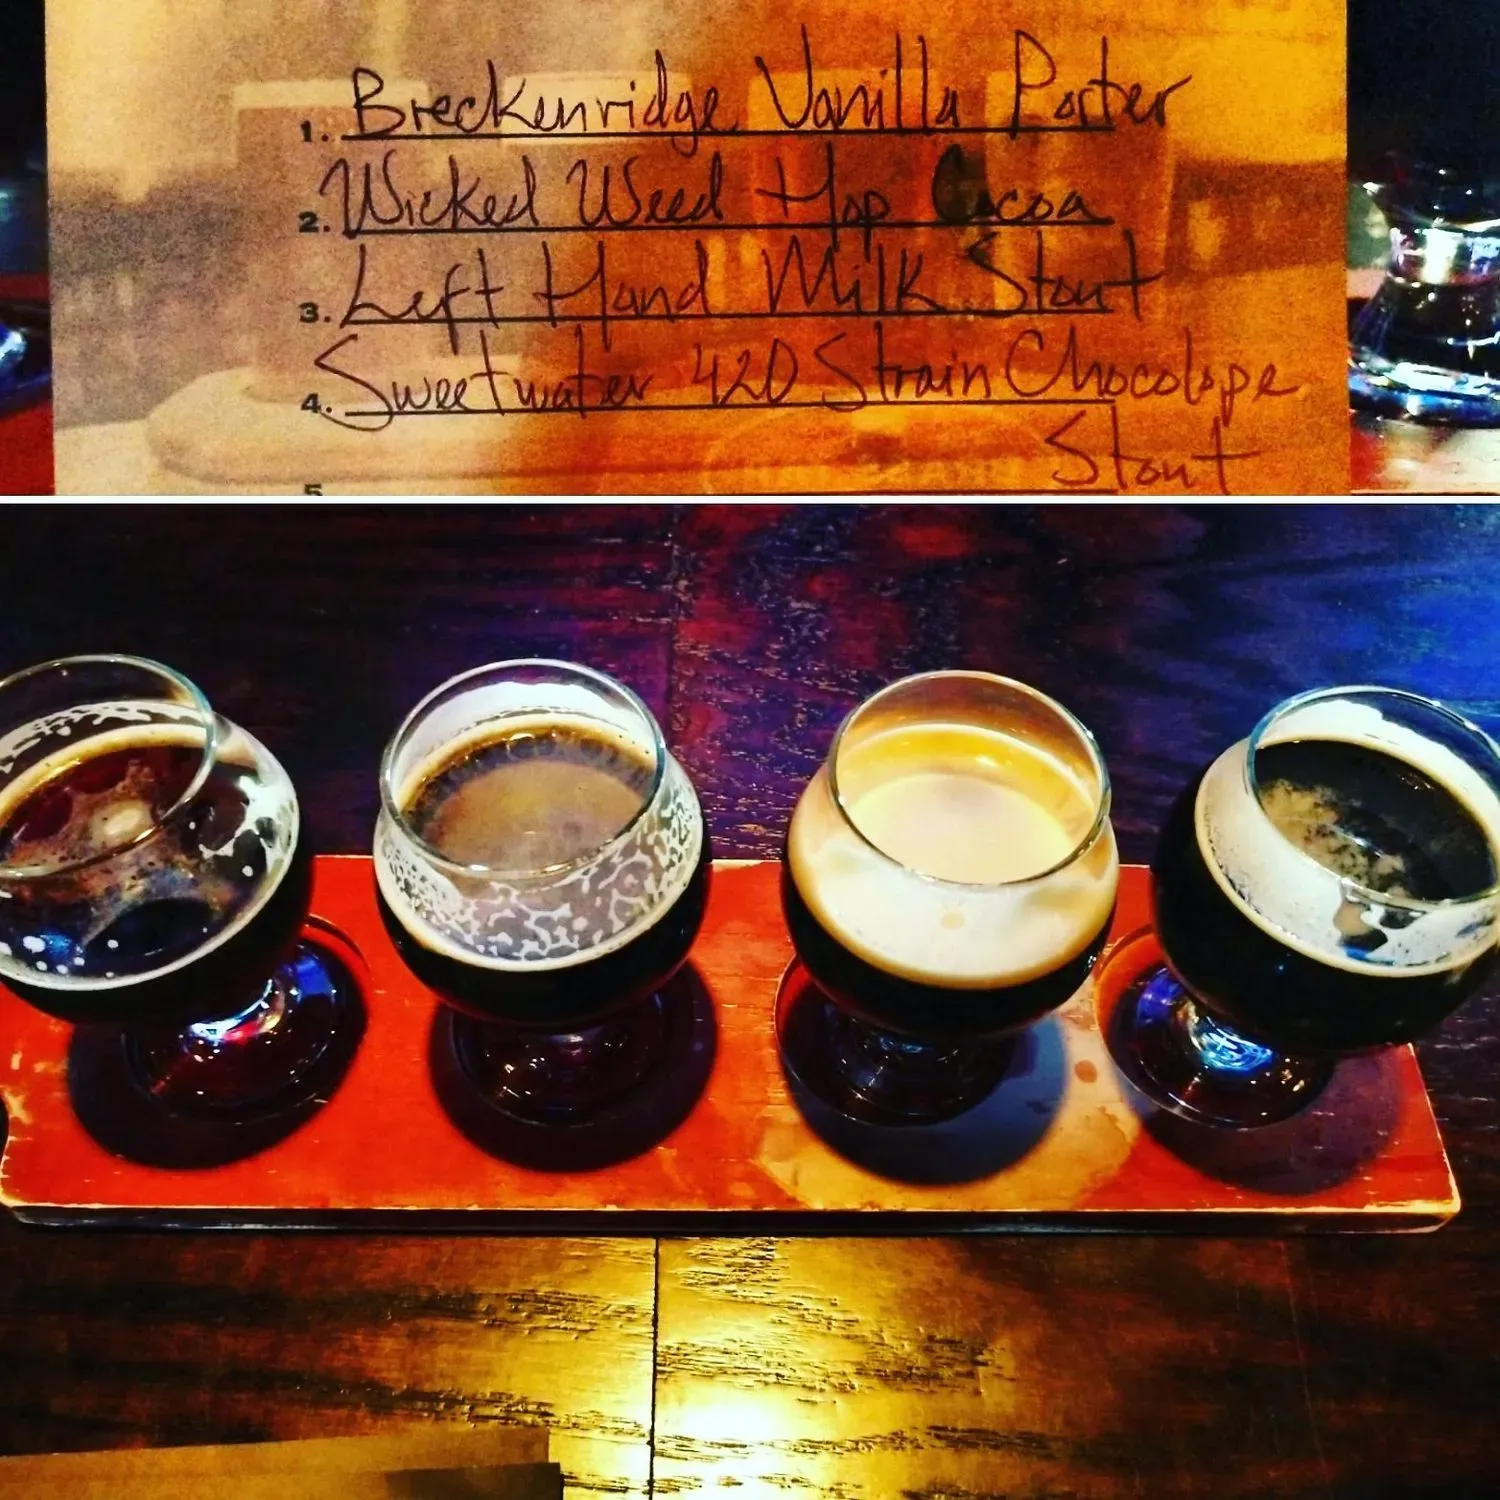 1. Breckenridge Vanilla Porter
2. Wicked Weed Hop Cocoa
3. Left Hand Milk Stout
4. Sweetwater 420 Strain Chocolope
Stout
5